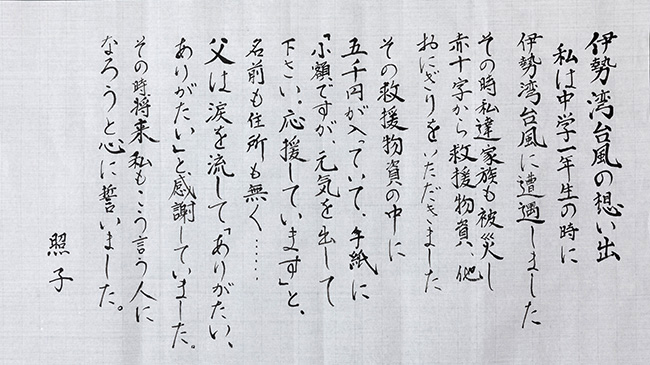 伊勢湾台風の想い出
私は中学一年生の時に
伊勢湾台風に遭遇しました
その時私達家族も被災し
赤十字から救援物資、他
おにぎりをいただきました
その救援物資の中に
五千円が入っていて、手紙に
「小額ですが、元気を出して
下さい。応援しています」と、
名前も住所も無く……
父は涙を流して「ありがたい、
ありがたい」と感謝していました。
その時将来私もこう言う人に
なろうと心に誓いました。
照子